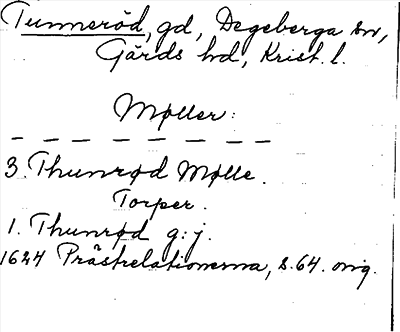 Tunneröd, gd, Degeberga sn,
Gärds hd, Krist. l.
Møller:
— — — — — — — —
3. Thunrød Mølle.
Torper.
1. Thunrød g:j.
1624 Prästrelationerna, s. 64. orig.